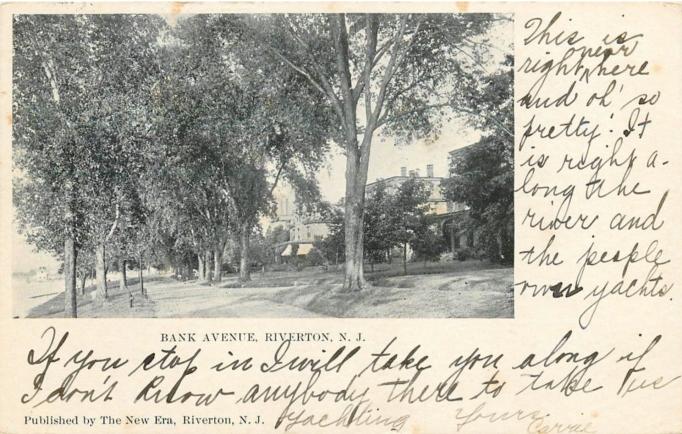 This is
right near here
and oh' so
pretty! It
is right a-
long the
river and
the people
own yachts.
BANK AVENUE, RIVERTON, N. J.
If you stop in I will take you along if
I don't know anybody there to take us
Published by The New Era, Riverton, N. J.
Yachting Yours
Carrie